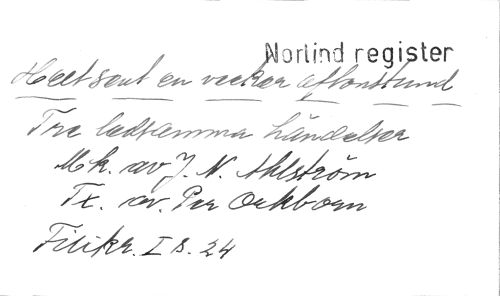 Norlind register
Helt sent en vacker aftonstund
Tre ledsamma händelser
Mk. av J. N. Ahlström
Tx. av. Per Orkborn
Filikr. I s. 24